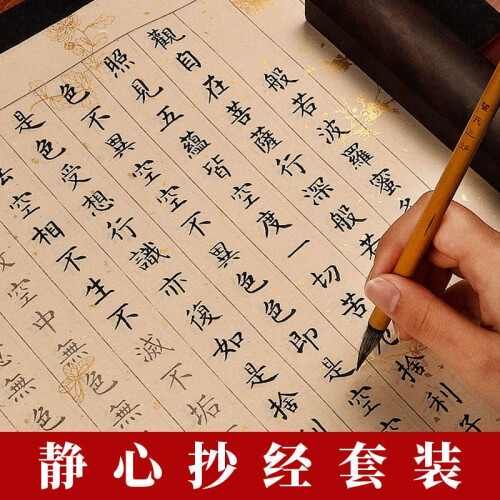 般若波羅蜜
觀自在菩薩行深般若
照見五蘊皆空度一切苦捨利子
色不異空空不異色色即是空空
是色受想行識亦復如是捨
空相不生不滅不垢
空中無色無
無色
静心抄经套装